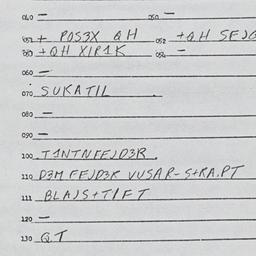 040 — 050 —
051 + POS3X QH 052 +QH SEJG
053 +QH XIP1K 054 —
060 —
070 SUKATIL .
080 —
090 —
100 T1NTNFFJD3R.
110 D3M FFJD3R VUSAR-S+RA.PT
111 BLAJS+TIFT
120 —
130 QT